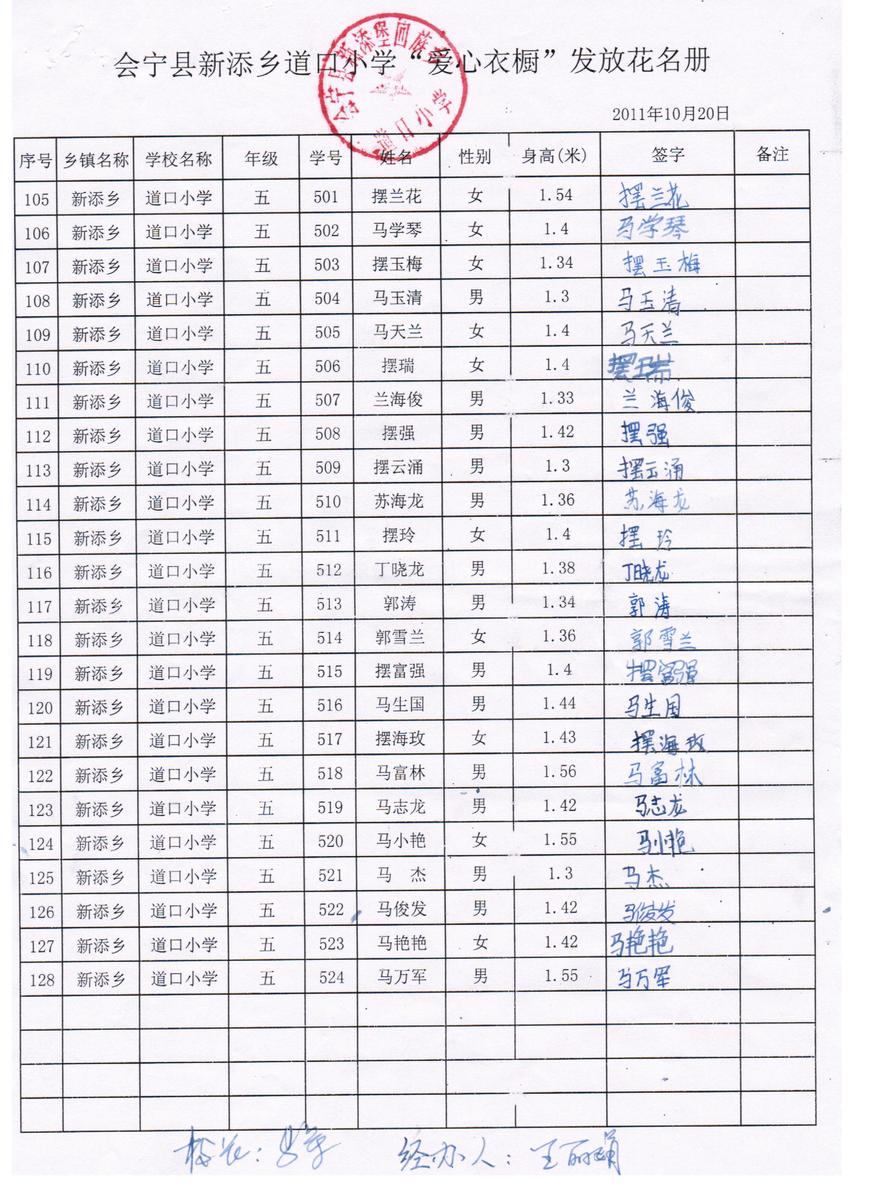 会宁县新添乡道口小学“爱心衣橱”发放花名册
会宁县新添堡回族乡
道口小学
2011年10月20日
序号 乡镇名称 学校名称 年级 学号 姓名 性别 身高(米) 签字 备注
105 新添乡 道口小学 五 501 摆兰花 女 1.54 摆兰花
106 新添乡 道口小学 五 502 马学琴 女 1.4 马学琴
107 新添乡 道口小学 五 503 摆玉梅 女 1.34 摆玉梅
108 新添乡 道口小学 五 504 马玉清 男 1.3 马玉清
109 新添乡 道口小学 五 505 马天兰 女 1.4 马天兰
110 新添乡 道口小学 五 506 摆瑞 女 1.4 摆瑞
111 新添乡 道口小学 五 507 兰海俊 男 1.33 兰海俊
112 新添乡 道口小学 五 508 摆强 男 1.42 摆强
113 新添乡 道口小学 五 509 摆云涌 男 1.3 摆云涌
114 新添乡 道口小学 五 510 苏海龙 男 1.36 苏海龙
115 新添乡 道口小学 五 511 摆玲 女 1.4 摆玲
116 新添乡 道口小学 五 512 丁晓龙 男 1.38 丁晓龙
117 新添乡 道口小学 五 513 郭涛 男 1.34 郭涛
118 新添乡 道口小学 五 514 郭雪兰 女 1.36 郭雪兰
119 新添乡 道口小学 五 515 摆富强 男 1.4 摆富强
120 新添乡 道口小学 五 516 马生国 男 1.44 马生国
121 新添乡 道口小学 五 517 摆海玫 女 1.43 摆海玫
122 新添乡 道口小学 五 518 马富林 男 1.56 马富林
123 新添乡 道口小学 五 519 马志龙 男 1.42 马志龙
124 新添乡 道口小学 五 520 马小艳 女 1.55 马小艳
125 新添乡 道口小学 五 521 马 杰 男 1.3 马杰
126 新添乡 道口小学 五 522 马俊发 男 1.42 马俊发
127 新添乡 道口小学 五 523 马艳艳 女 1.42 马艳艳
128 新添乡 道口小学 五 524 马万军 男 1.55 马万军
校长: 经办人: 王丽娟